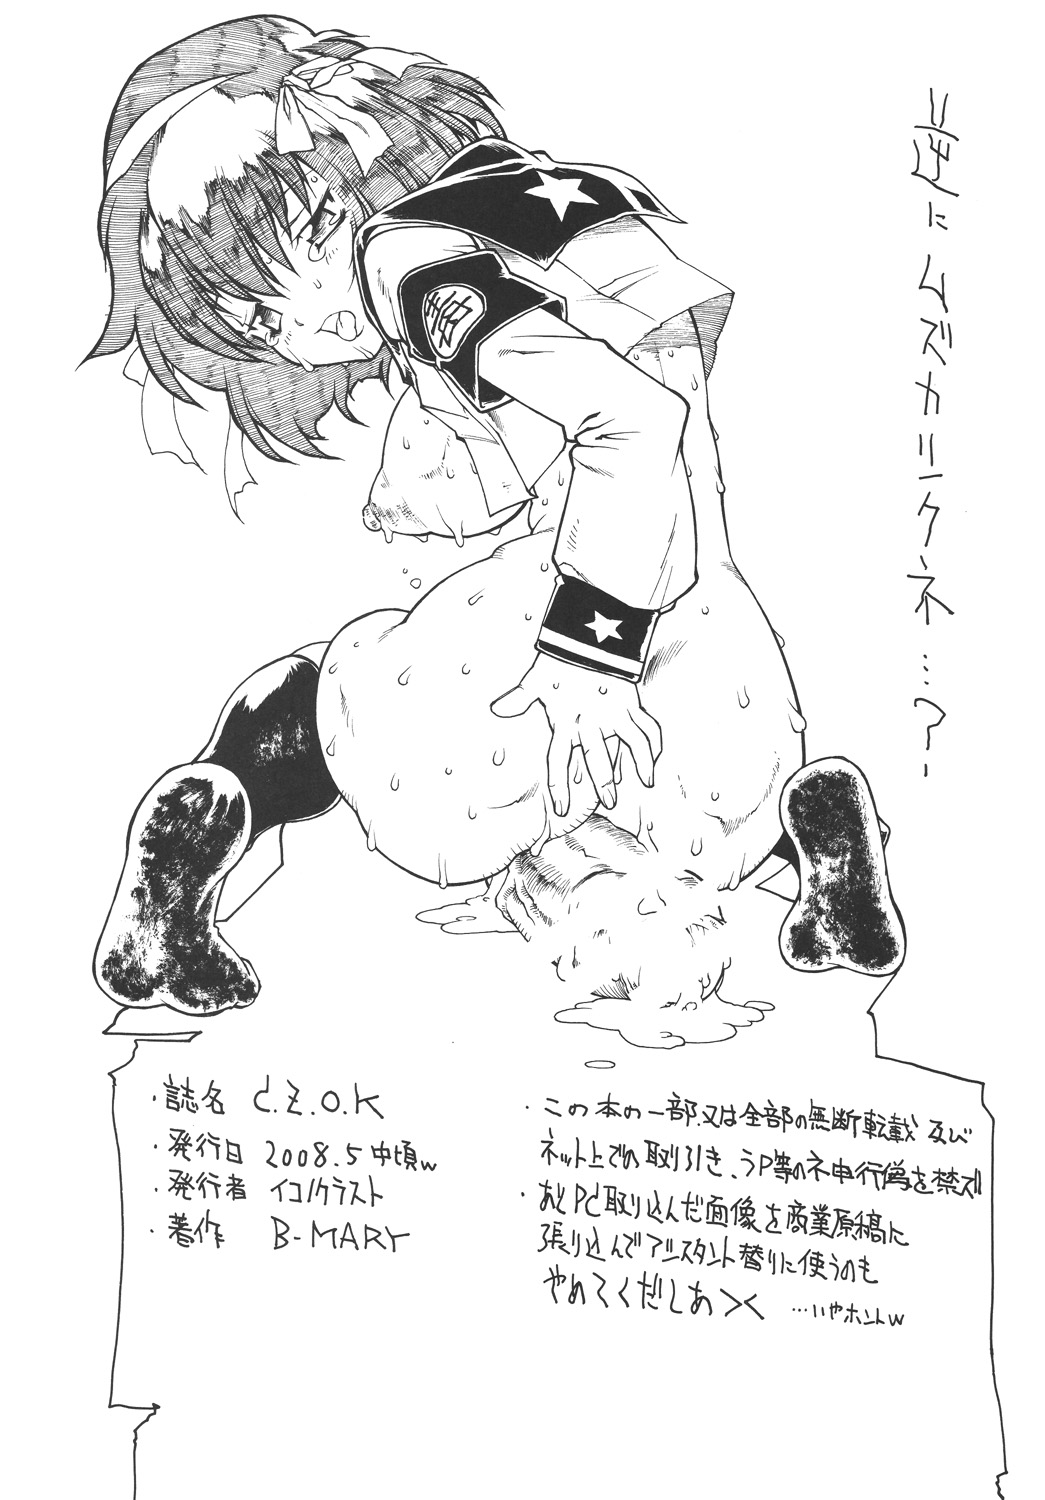 逆にムズカリィクネ…？
・誌名 C.Z.O.K
・発行日 2008.5 中頃w
・発行者 イコノクラスト
・著作 B-MARY
・この本の一部、又は全部の無断転載 及び
ネット上での取り引き、うP等のネ申行為を禁ズ
・あとPCに取り込んだ画像を商業原稿に
張り込んでアシスタント替りに使うのも
やめてくだしあ><　…いやホントw